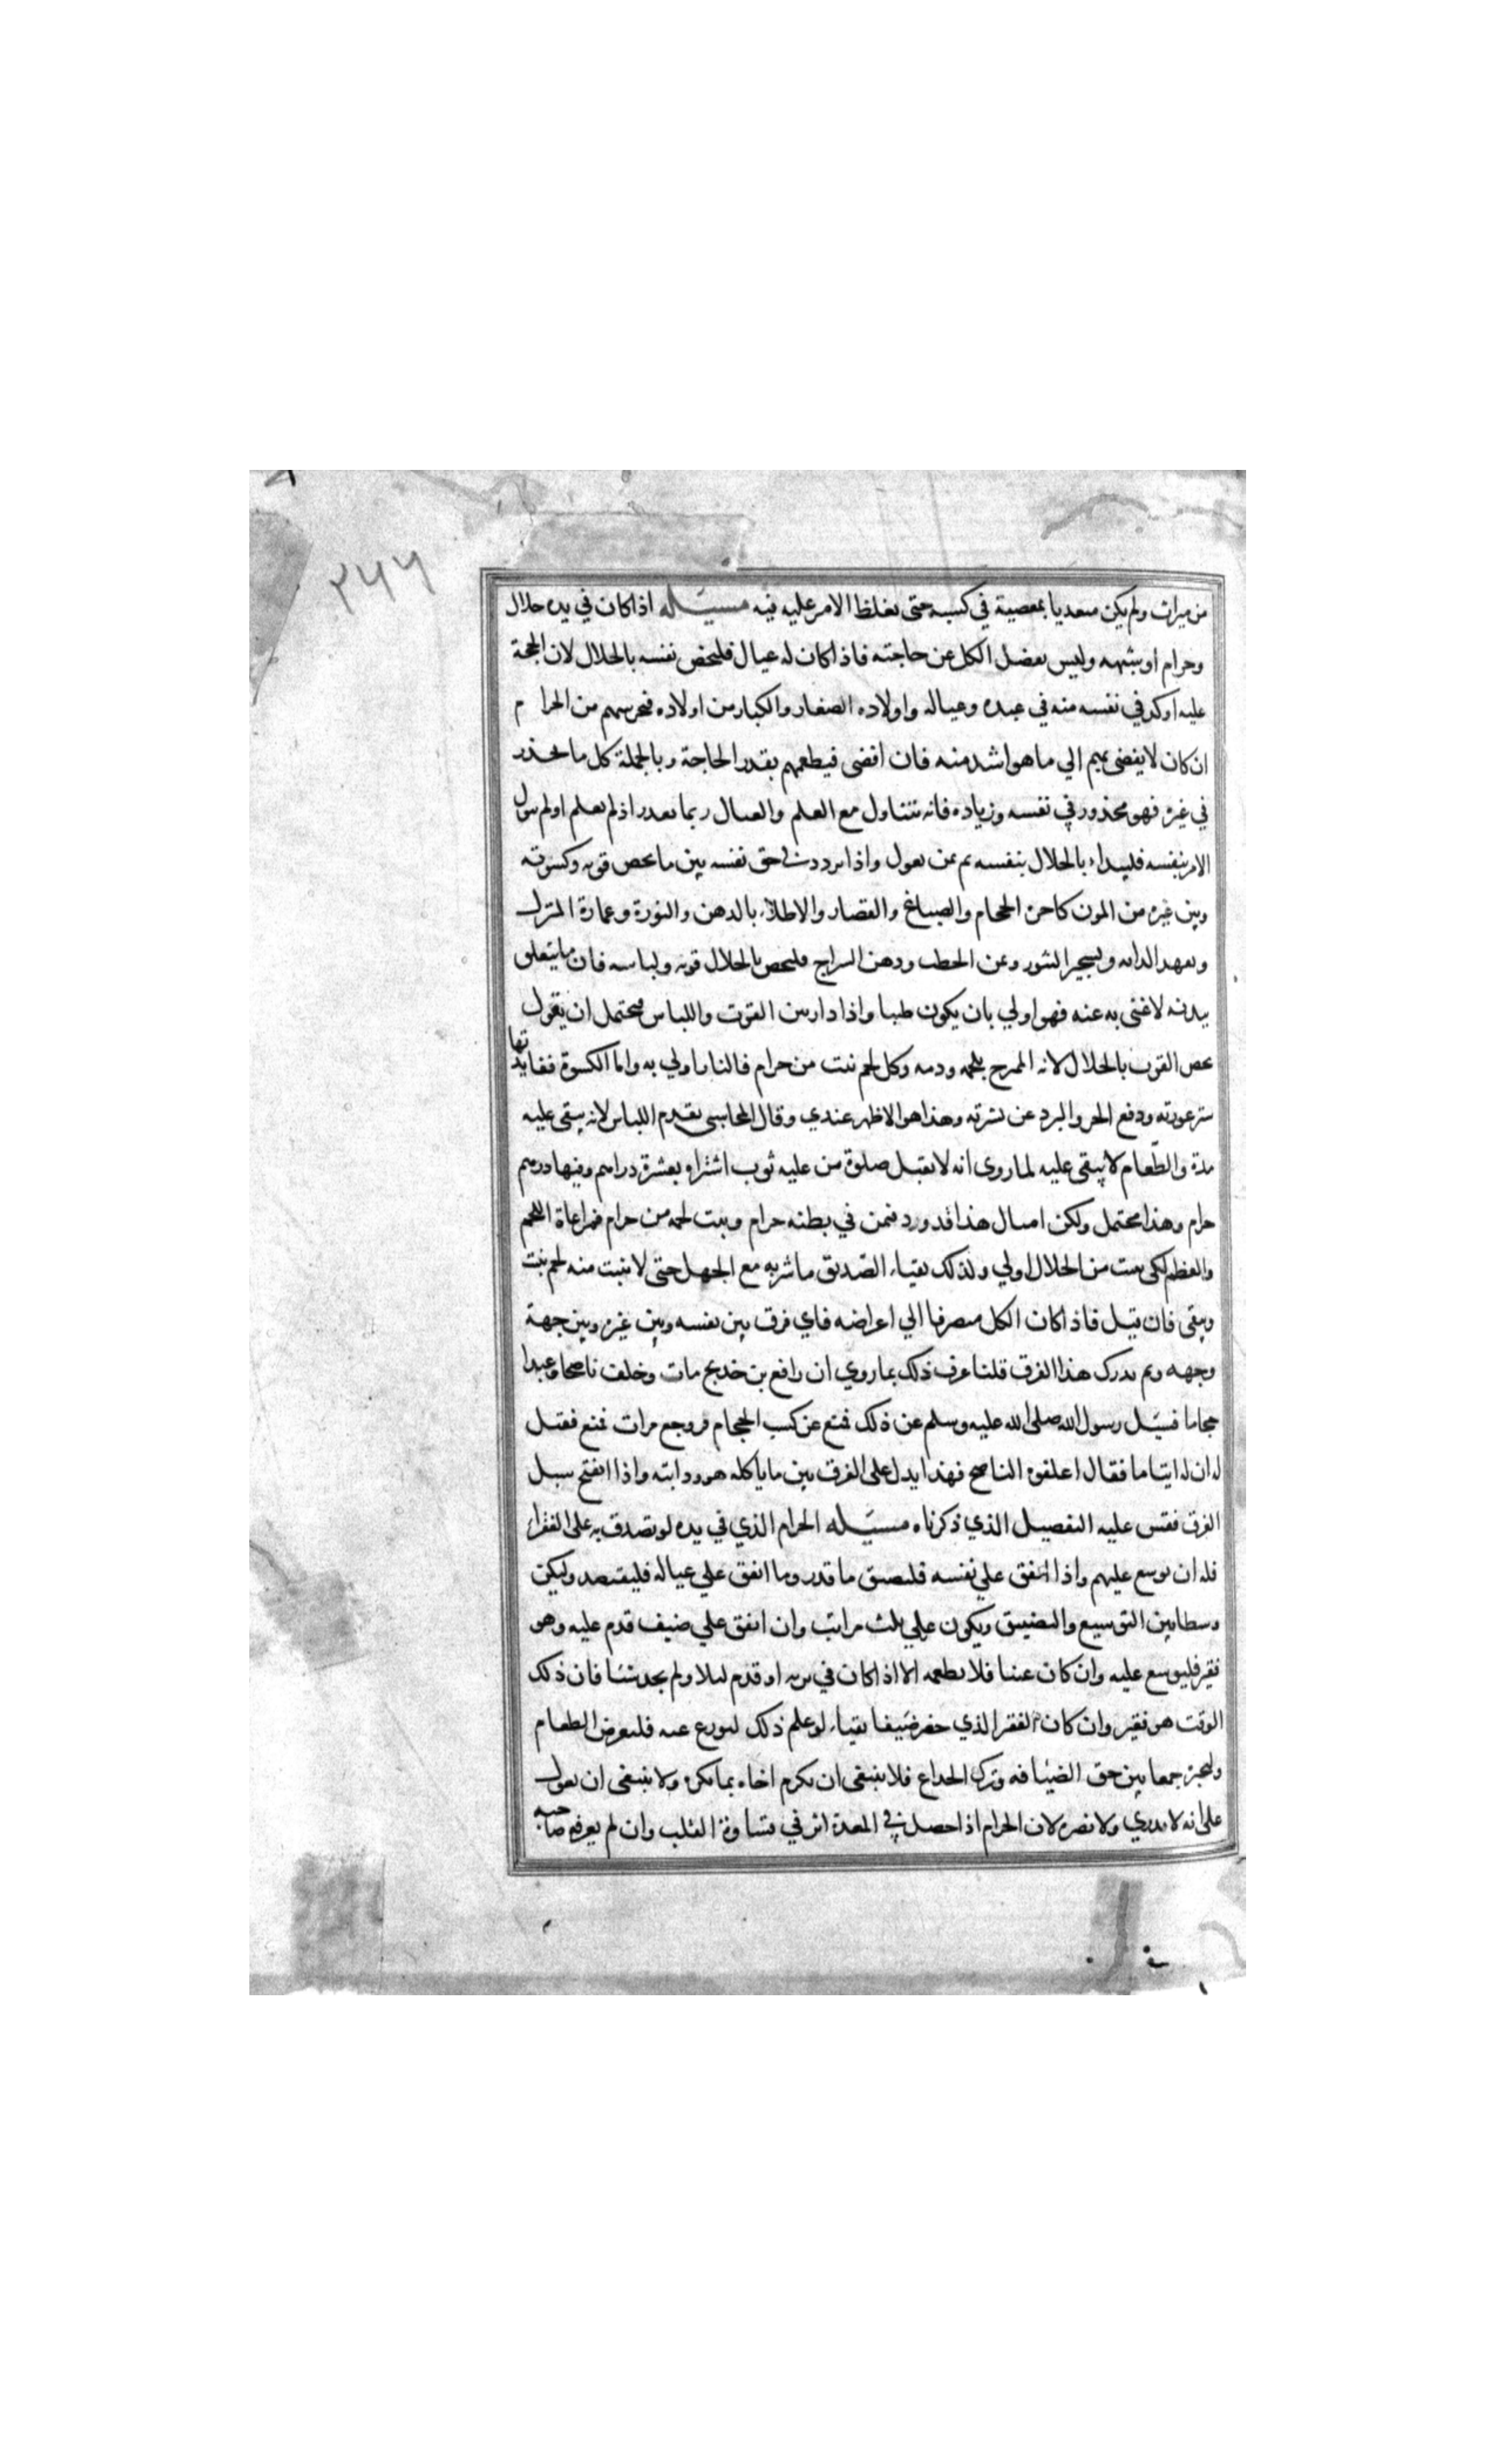 ٢٤٦
من ميراث ولم يكن متعديا بمعصية في كسبه حتى يغلظ الامر عليه فيه مسئله اذا كان في يده حلال
وحرام او شبهه وليس يفضل الكل عن حاجته فاذا كان له عيال فليخص نفسه بالحلال لان الحجة
عليه اوكد في نفسه منه في عبده وعياله واولاده الصغار والكبار من اولاده فيحرسهم من الحرام
ان كان لا يفضى بهم الي ما هو اشد منه فان افضى فيطعمهم بقدر الحاجة وبالجملة كل ما يحذر
في غيره فهو محذور في نفسه وزياده فانه يتناول مع العلم والعيال ربما تعذر اذ لم تعلم او لم يتول
الامر بنفسه فليبداء بالحلال بنفسه ثم بمن يعول واذا تردد في حق نفسه بين ما يخص قوته وكسوته
وبين غيره من المون كاجرة الحجام والصباغ والقصار والاطلاء بالدهن والنورة وعمارة المنزل
وتعهد الدابه وتسجير التنور وثمن الحطب ودهن السراج فليخص بالحلال قوته ولباسه فان ما يتعلق
ببدنه لا غنى به عنه فهو اولي بان يكون طيبا واذا دار بين القوت واللباس فيحتمل ان يقول
يخص القوت بالحلال لانه الممتزج بلحمه ودمه وكل لحم نبت من حرام فالنار اولي به واما الكسوة ففايدتها
ستر عورته ودفع الحر والبرد عن بشرته وهذا هو الاظهر عندي وقال المحاسبي يقدم اللباس لانه يبقى عليه
مدة والطعام لا يبقى عليه لما روى انه لا يقبل صلوة من عليه ثوب اشتراه بعشرة دراهم وفيها درهم
حرام وهذا محتمل ولكن امثال هذا قد ورد فيمن في بطنه حرام ونبت لحمه من حرام فمراعاة اللحم
والعظم لكى ينبت من الحلال اولي ولذلك تقياء الصديق ما شربه مع الجهل حتى لا ينبت منه لحم يثبت
ويبقى فان قيل فاذا كان الكل منصرفا الي اغراضه فاي فرق بين نفسه وبين غيره وبين جهة
وجهه وبم يدرك هذا الفرق قلنا عرف ذلك بما روي ان رافع بن خديج مات وخلف ناضحا وعبدا
حجاما فسئل رسول الله صلى الله عليه وسلم عن ذلك فمنع عن كسب الحجام فروجع مرات فمنع فقيل
له ان له ايتاما فقال اعلفوه الناضح فهذا يدل على الفرق بين ما ياكله هو ودابته واذا انفتح سبيل
الفرق فقس عليه التفصيل الذي ذكرناه مسئله الحرام الذي في يده لو تصدق به على الفقراء
فله ان يوسع عليهم واذا انفق علي نفسه فليضيق ما قدر وما انفق علي عياله فليقتصد وليكن
وسطا بين التوسيع والتضييق ويكون علي ثلث مراتب وان انفق علي ضيف قدم عليه وهو
فقير فليوسع عليه وان كان غنيا فلا يطعمه الا اذا كان في بريه او قدم ليلا ولم يجد شيئا فان ذلك
الوقت هو فقير وان كان الفقير الذي حضر ضيفا تقيا لو علم ذلك لتورع عنه فليعرض الطعام
وليخبره جمعا بين حق الضيافه وترك الخداع فلا ينبغي ان يكرم اخاه بما يكره ولا ينبغى ان يعول
على انه لا يدري ولا يضره لان الحرام اذا حصل في المعدة اثر في قساوة القلب وان لم يعرفه صاحبه